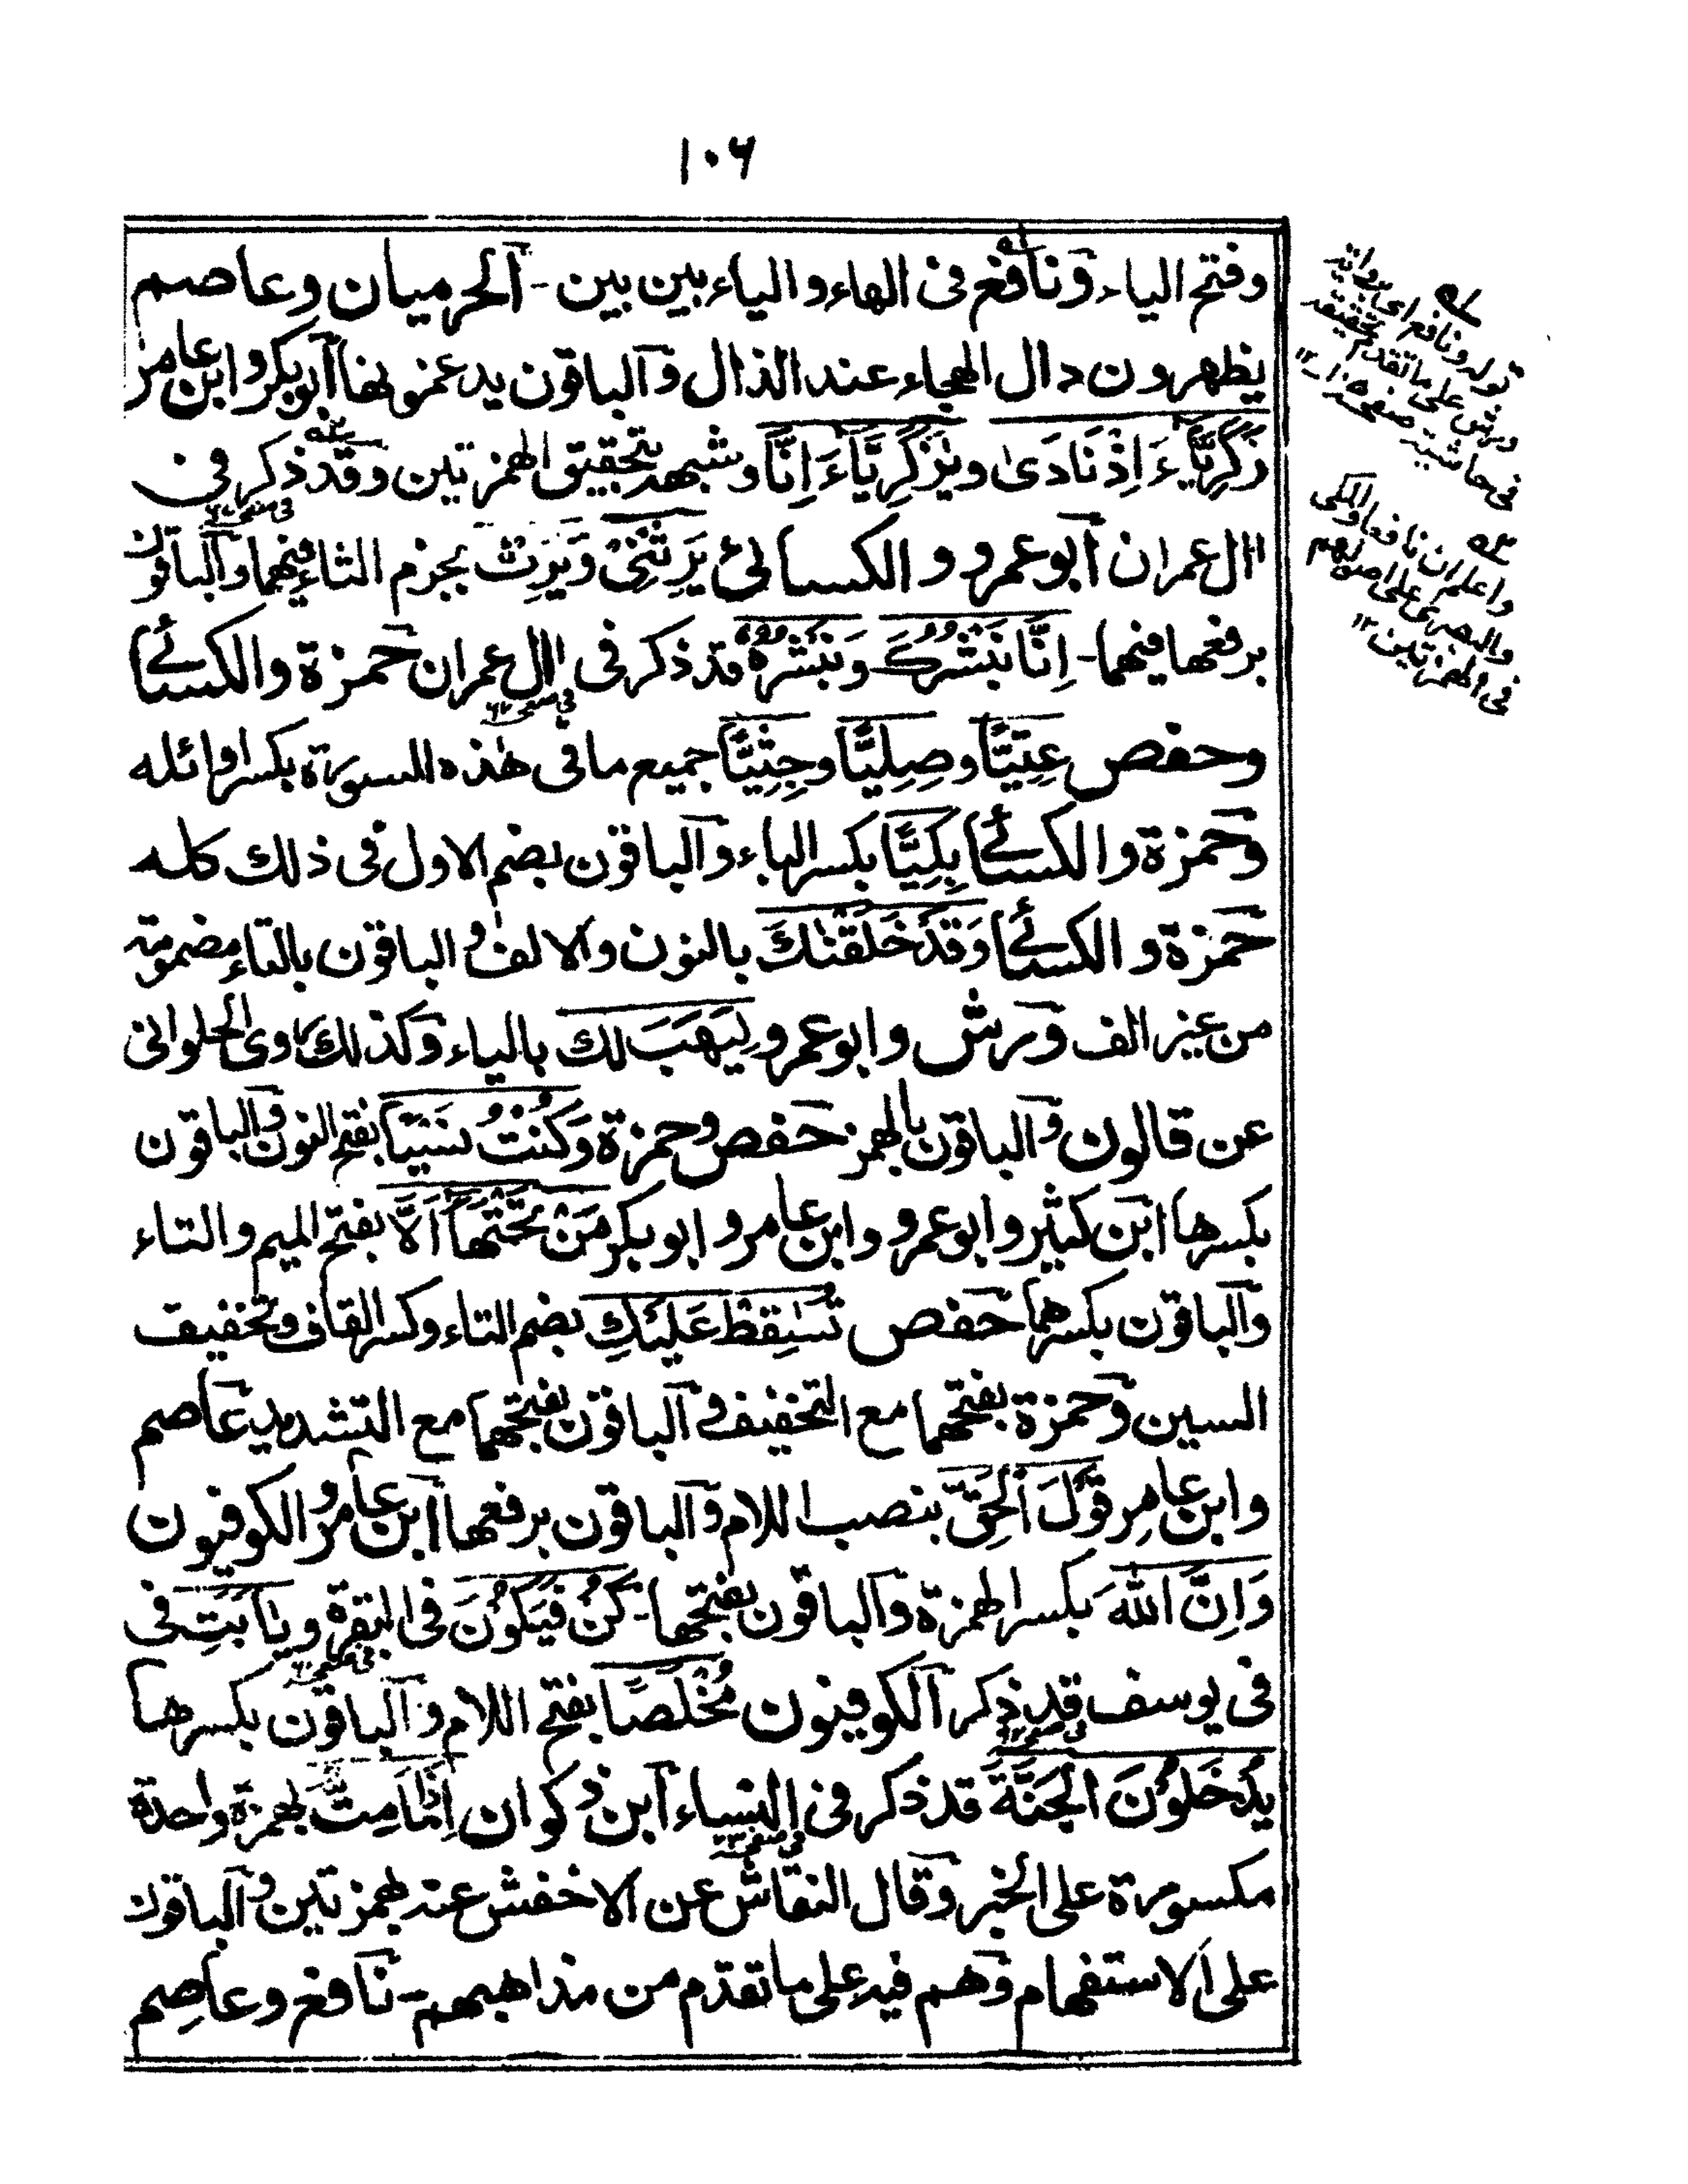 ١٠٦
وفتح الياء ونافع فى الهاء والياء بين بين - الحرميان وعاصم
يظهرون دال الهجاء عند الذال والباقون يدغمونها ابوبكر وابن عامر
زَكَرِيَّآءَ اِذْ نَادَىٰ ويٰزَكَرِيَّآءُ اِنَّا وشبهه بتحقيق الهمزتين وقد ذكر فى
اٰل عمران ابوعمرو والكسائى يَرِثْنِىْ وَيَرِثْ بجزم الثاء فيهما والباقون
فى صفحه
برفعها فيهما - اِنَّا نَبْشُرُكَ وَنَبْشُرُهُ قد ذكر فى اٰل عمران حمزة والكسائے
فى صفحه
وحفص عِتِيًّا وصِلِيًّا وجِثِيًّا جميع ما فى هٰذه السورة بكسر اوائله
وحمزة والكسائے بِكِيًّا بكسر الباء والباقون بضم الاول فى ذلك كله
حمزة والكسائے وَقَدْ خَلَقْنٰكَ بالنون والالف والباقون بالتاء مضمومة
من غير الف ورش وابوعمرو لِيَهَبَ لك بالياء وكذلك روى الحلوانى
عن قالون والباقون بالهمز حفص وحمزة وَكُنْتُ نَسْيًا بفتح النون والباقون
بكسرها ابن كثير وابوعمرو وابن عامر وابوبكر مَنْ تَحْتَهَا اَلَّا بفتح الميم والتاء
والباقون بكسرهما حفص تُسٰقِطْ عَلَيْكِ بضم التاء وكسر القاف وتخفيف
السين وحمزة بفتحهما مع التخفيف والباقون بفتحهما مع التشديد عاصم
وابن عامر قَوْلَ الْحَقِّ بنصب اللام والباقون برفعها ابن عامر والكوفيون
وَاِنَّ اللّٰهَ بكسر الهمزة والباقون بفتحها - كُنْ فَيَكُوْنَ فى البقرة ويٰٓاَبَتِ فى
فى صفحه
فى يوسف قد ذكر الكوفيون مُخْلَصًا بفتح اللام والباقون بكسرها
فى صفحه
يُدْخَلُوْنَ الْجَنَّةَ قد ذكر فى النساء ابن ذكوان اِذَا مَامِتُّ بهمزة واحدة
فى صفحه
مكسورة على الخبر وقال النقاش عن الاخفش عنه بهمزتين والباقون
على الاستفهام وهم فيه على ما تقدم من مذاهبهم - نافع وعاصم
قوله ونافع اى برواية
ورش على ما تقدم تحقيقه
فى حاشية صفحه ١٢
واعلم ان نافعا والمكى
والبصرى على اصولهم
فى الهمزتين ١٢